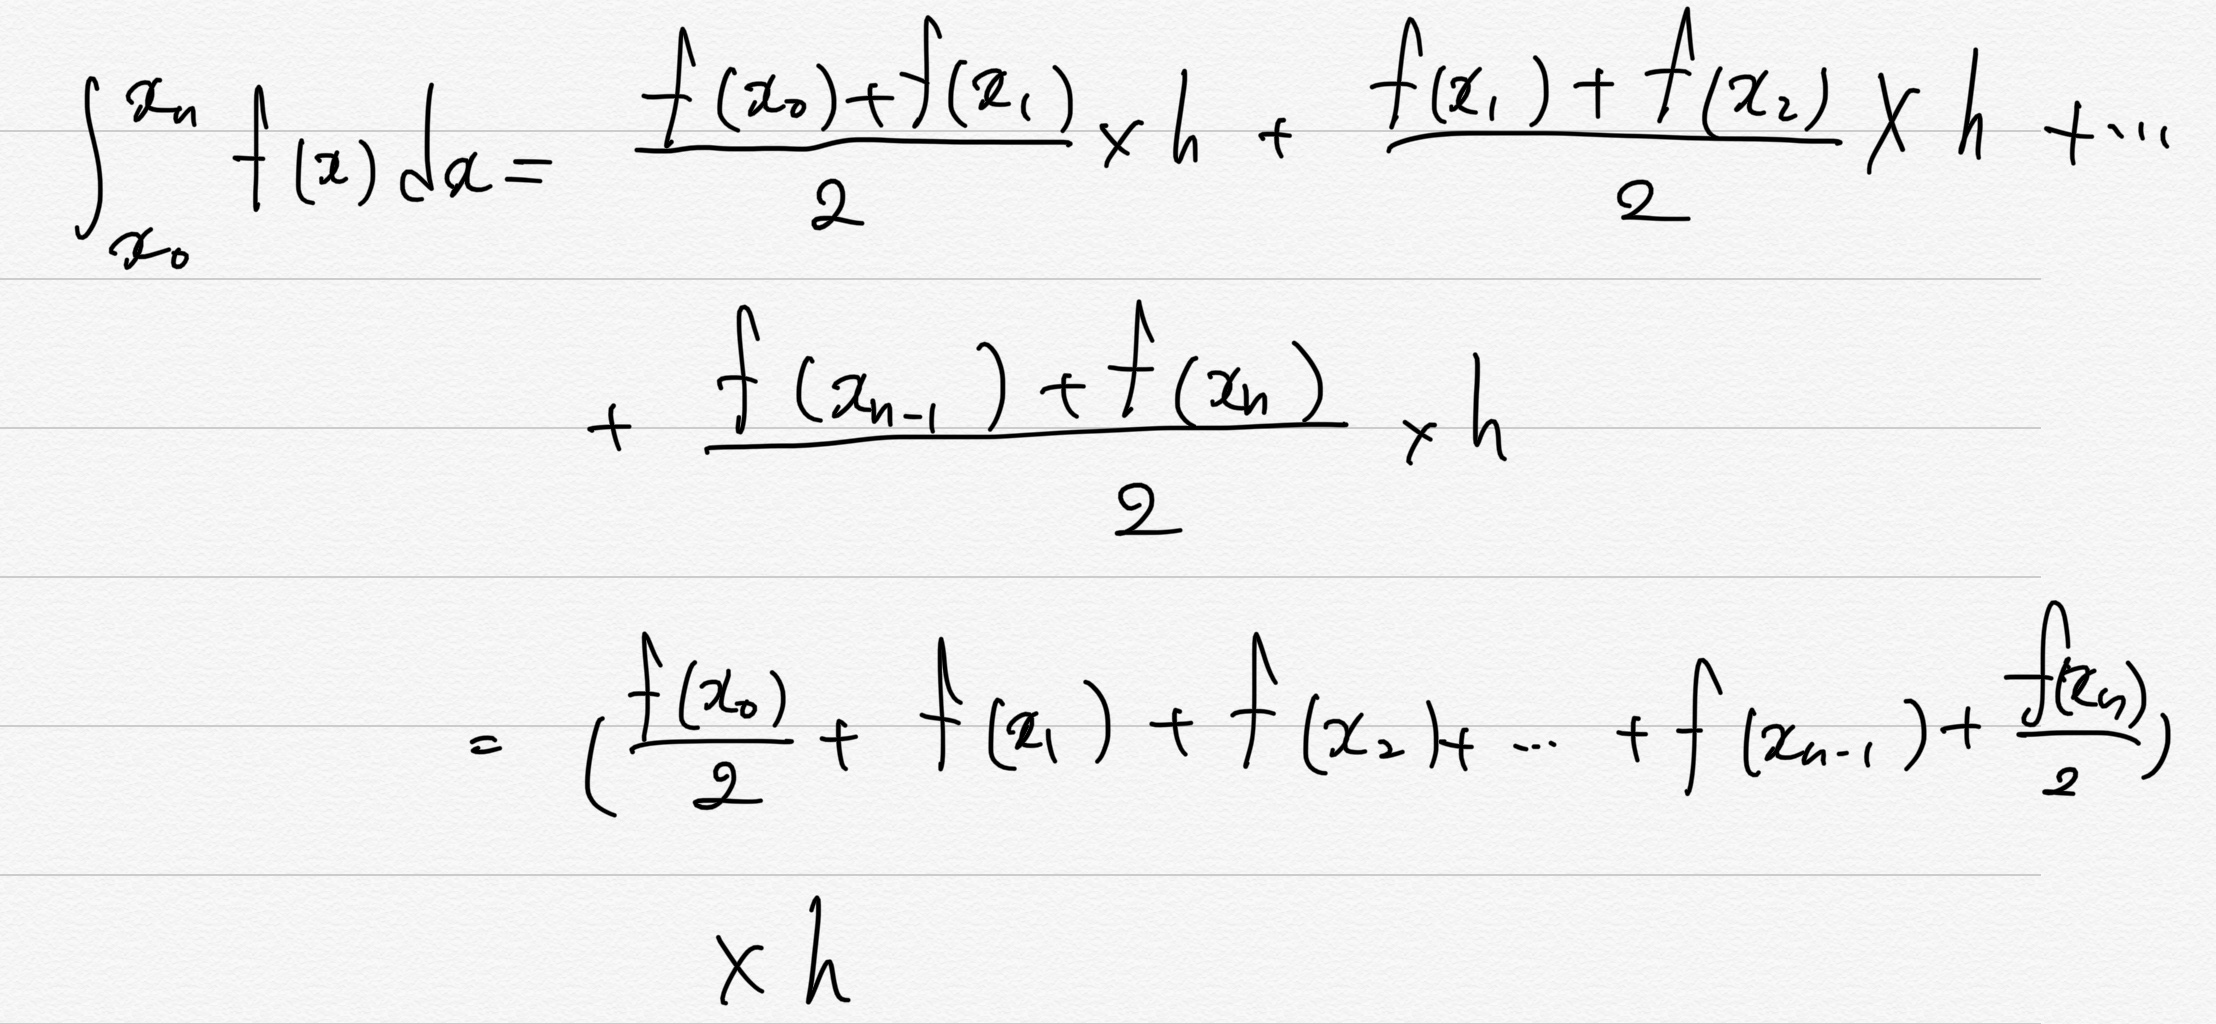 ∫_{x₀}^{xₙ} f(x) dx = \frac{f(x₀) + f(x₁)}{2} × h + \frac{f(x₁) + f(x₂)}{2} × h + ...
+ \frac{f(xₙ₋₁) + f(xₙ)}{2} × h
= (\frac{f(x₀)}{2} + f(x₁) + f(x₂) + ... + f(xₙ₋₁) + \frac{f(xₙ)}{2})
× h